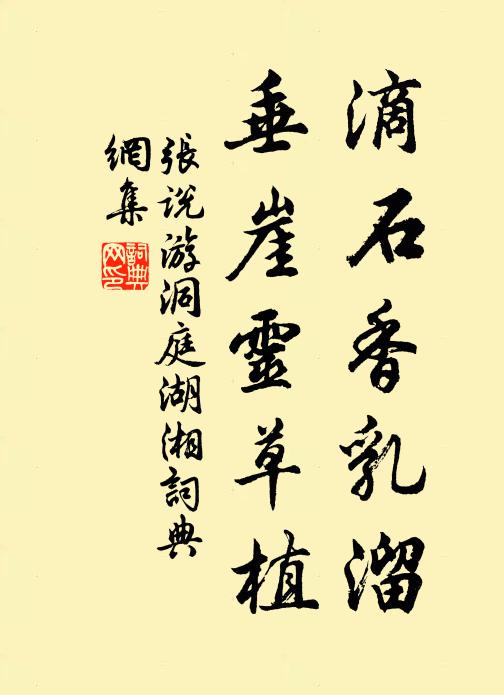 滴石香乳溜
垂崖靈草植
張說游洞庭湖湘詞典
網集
詞典
网印